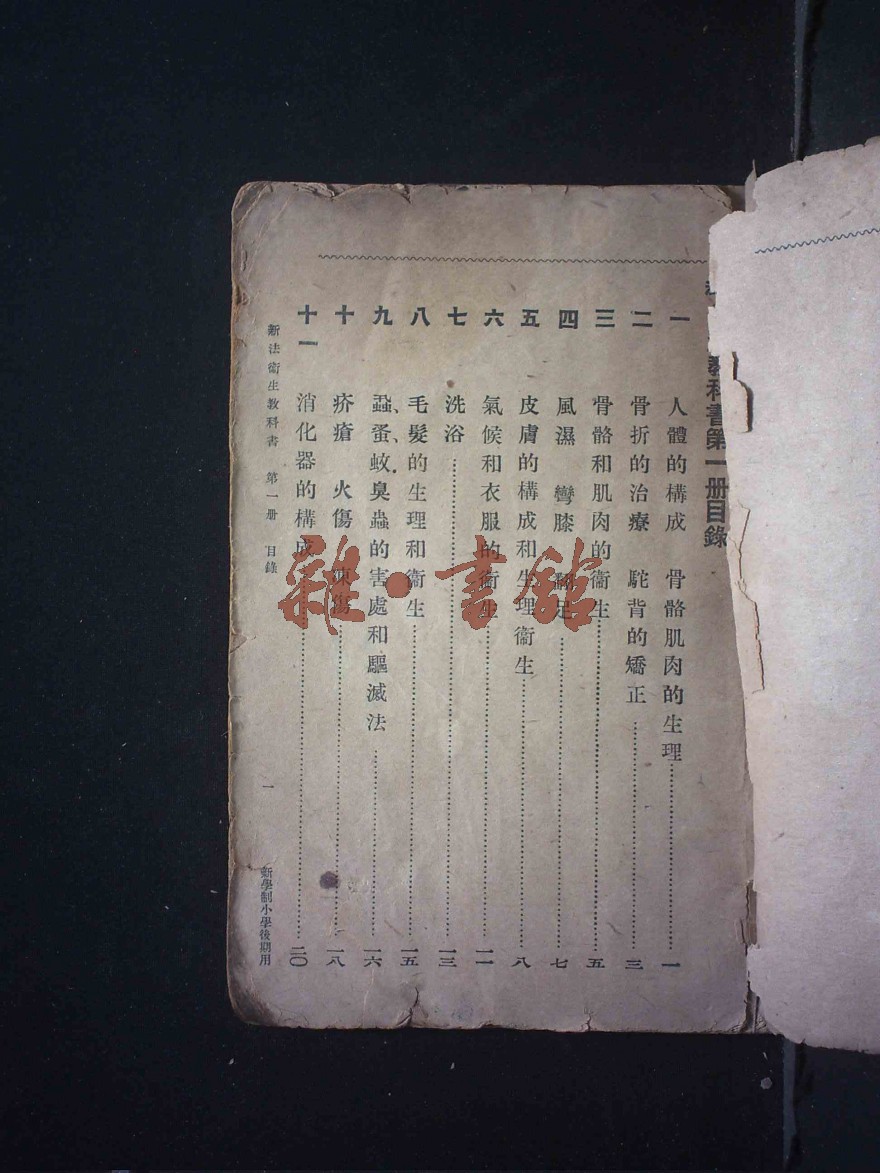 教科書第一册目錄
一 人體的構成 骨骼肌肉的生理 一
二 骨折的治療 駝背的矯正 三
三 骨骼和肌肉的衞生 五
四 風濕 彎膝 翻足 七
五 皮膚的構成和生理衞生 八
六 氣候和衣服的衞生 一一
七 洗浴 一三
八 毛髮的生理和衞生 一五
九 蝨、蚤、蚊、臭蟲的害處和驅滅法 一六
十 疥瘡 火傷 凍傷 一八
十一 消化器的構成 二〇
新法衞生教科書 第一册 目錄
一
新學制小學後期用
雜·書館